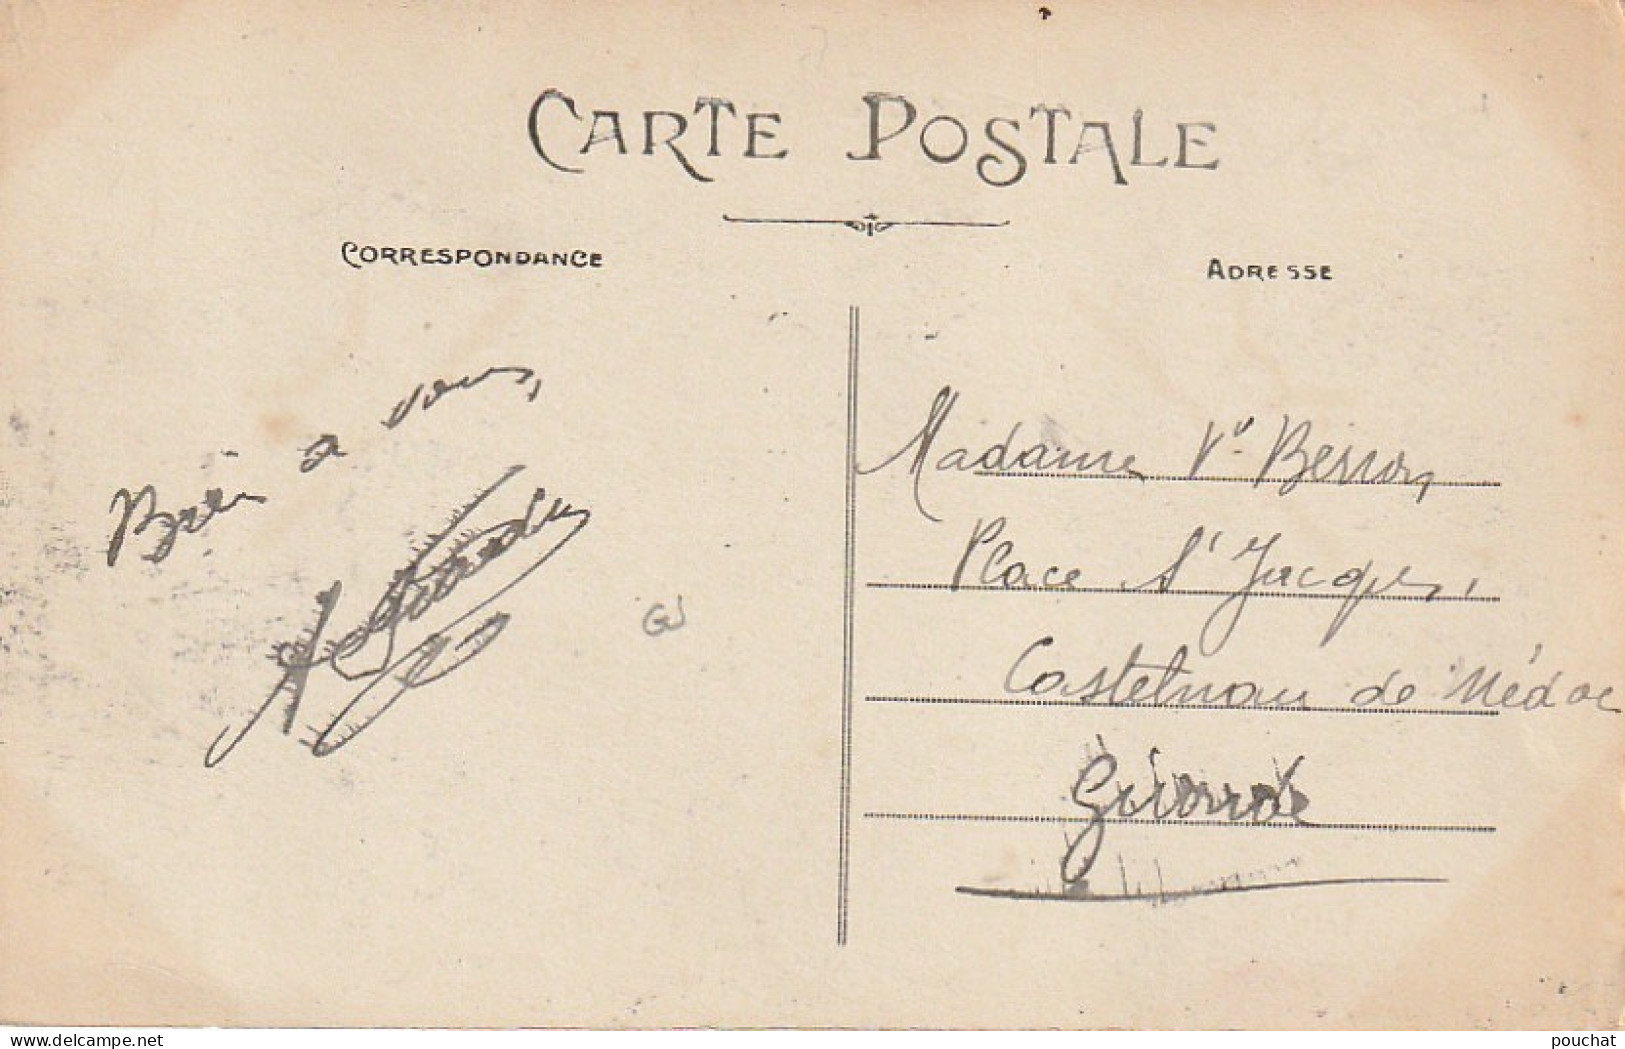 CARTE POSTALE
CORRESPONDANCE
ADRESSE
Bien a vous,
Madame Vve
Place St Jacques,
Castelnau de Médoc
Gironde
GJ
www.delcampe.net
pouchat